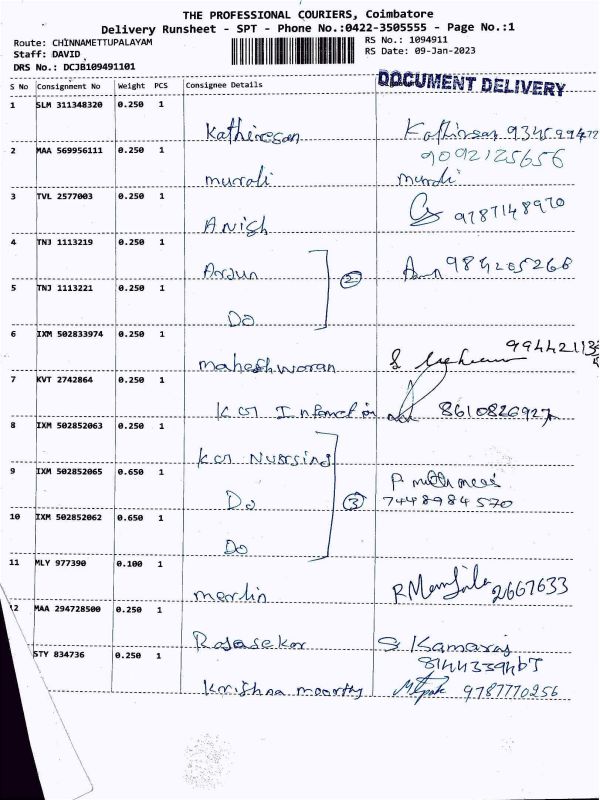 THE PROFESSIONAL COURIERS, Coimbatore
Delivery Runsheet - SPT - Phone No.:0422-3505555 - Page No.:1
Route: CHINNAMETTUPALAYAM RS No.: 1094911
Staff: DAVID RS Date: 09-Jan-2023
DRS No.: DCJB109491101
DOCUMENT DELIVERY
S No Consignment No Weight PCS Consignee Details
1 SLM 311348320 0.250 1
Kathiresan Kathiresan
2 MAA 569956111 0.250 1 9092125656
murali murali
3 TVL 2577003 0.250 1
ANish 9787148970
4 TNJ 1113219 0.250 1
Arjun 2
5 TNJ 1113221 0.250 1
Do
6 IXM 502833974 0.250 1
maheshwaran
7 KVT 2742864 0.250 1
8610826927
8 IXM 502852063 0.250 1
Nursing
9 IXM 502852065 0.650 1
Do 3 7448984570
10 IXM 502852062 0.650 1
Do
11 MLY 977390 0.100 1
merlin 2667633
MAA 294728500 0.250 1
Rajasekar S Kamaraj
STY 834736 0.250 1
Krishna moorthy 9787770256